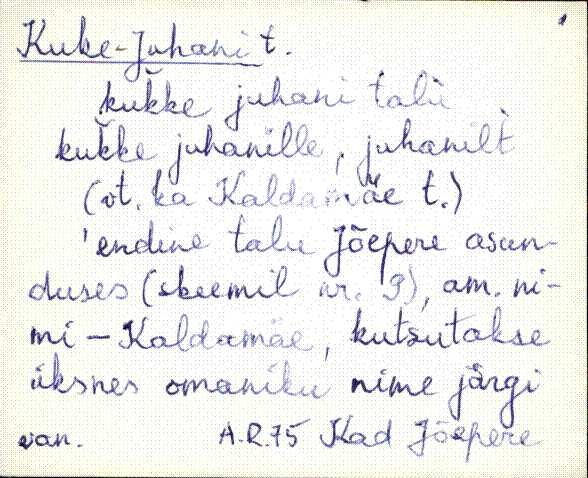 Kuke-Juhani t.
kukke juhani talu
kukke juhanille, juhanilt
(vt. ka Kaldamäe t.)
endine talu Jõepere asun-
duses (skeemil nr. 9), am. ni-
mi - Kaldamäe, kutsutakse
üksnes omaniku nime järgi
van. A.R.75 Kad Jõepere